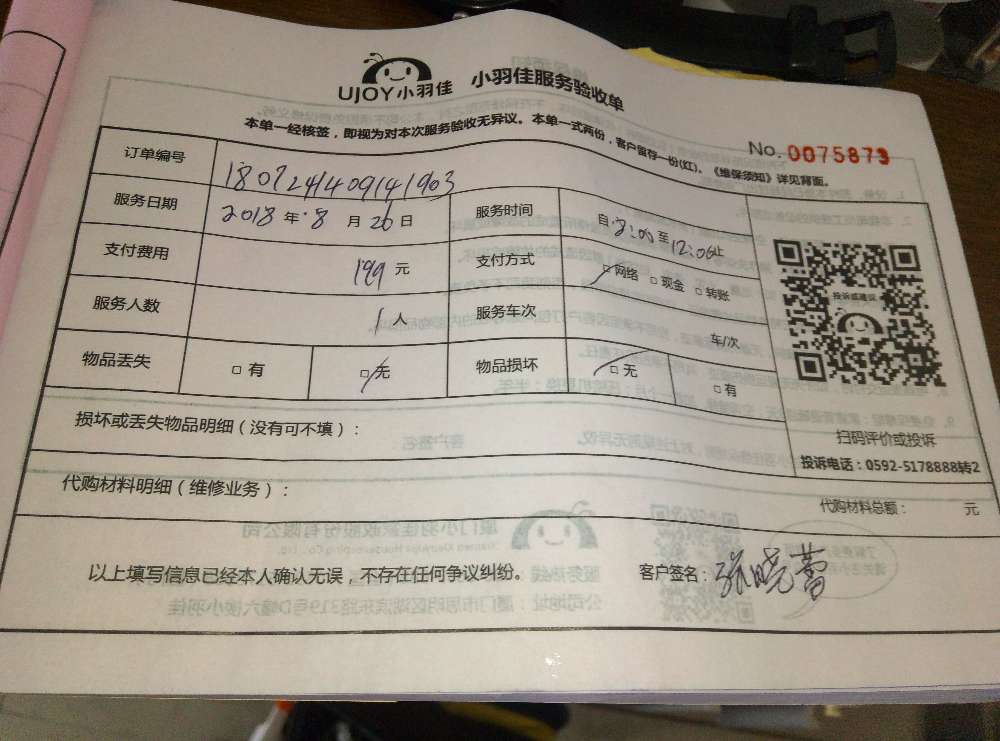 UJOY小羽佳 小羽佳服务验收单
本单一经核签，即视为对本次服务验收无异议。本单一式两份，客户留存一份(红)。《维保须知》详见背面。
No. 0075879
订单编号 1807241409141903
服务日期 2018 年 8 月 26 日 服务时间 自 8:00 至 12:00 止
支付费用 199 元 支付方式 □网络 □现金 □转账
服务人数 1 人 服务车次 车/次
物品丢失 □有 □无 物品损坏 □无 □有
投诉或建议
扫码评价或投诉
投诉电话：0592-5178888转2
损坏或丢失物品明细（没有可不填）：
代购材料明细（维修业务）： 代购材料总额： 元
以上填写信息已经本人确认无误，不存在任何争议纠纷。 客户签名：张晓蕾